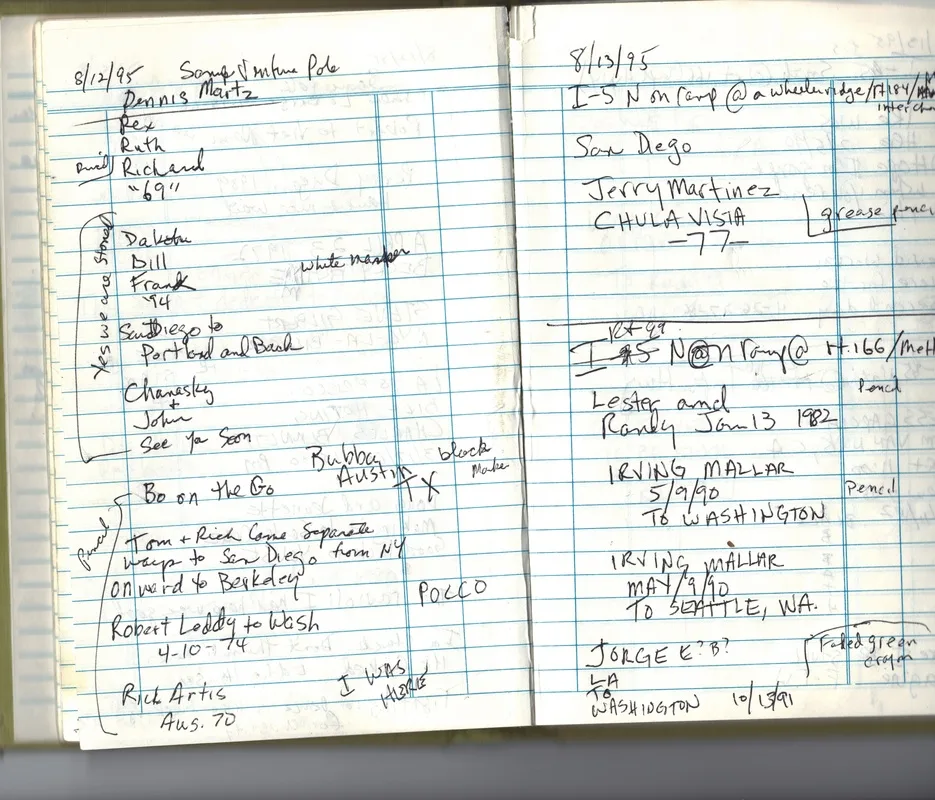 8/12/95 Same Venture Pole
Dennis Martz
Rex
Ruth
Richard
"69"
Yes we are Stoned
Dakota
Bill
Frank
'94
white marker
San Diego to
Portland and Back
Chanasky
+
John
See Ya Soon
Bubba
Austin
TX
black
Marker
Pencil
Bo on the Go
Tom + Rich Came Separate
ways to San Diego from NY
onward to Berkeley
POCCO
Robert Leddy to Wash
4-10-74
Rick Artis
Aug. 70
I WAS
HERE
8/13/95
I-5 N on ramp @ a wheelerridge/Rt184/
San Diego
Jerry Martinez
CHULA VISTA
-77-
grease
Rt 99
N on ramp @ rt.166/
Pencil
Lester and
Randy Jan 13 1982
IRVING MALLAR
5/9/90
TO WASHINGTON
Pencil
IRVING MALLAR
MAY/9/90
TO SEATTLE, WA.
JORGE E? B?
LA
TO
WASHINGTON 10/13/91
Faded green
crayon